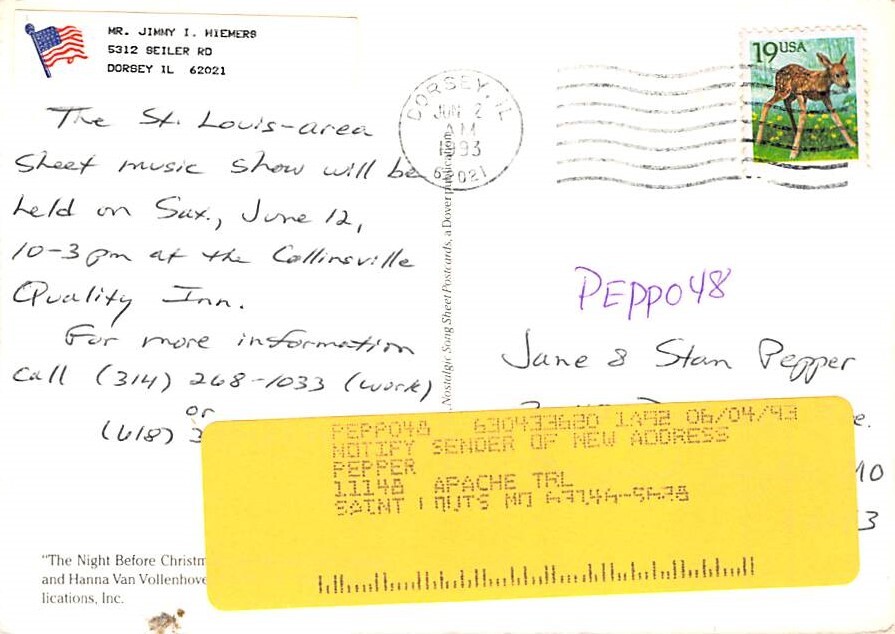 MR. JIMMY I. HIEMERS
5312 SEILER RD
DORSEY IL 62021
DORSEY, IL
JUN 2
AM
1993
62021
19 USA
The St. Louis-area
sheet music show will be
held on Sat., June 12,
10-3 pm at the Collinsville
Quality Inn.
For more information
call (314) 268-1033 (work)
or
(618) 3
"The Night Before Christm
and Hanna Van Vollenhove
lications, Inc.
Nostalgic Song Sheet Postcards, a Dover publication
PEPPO48
Jane & Stan Pepper
e.
MO
3
PEPPO48 630433620 1A92 06/04/93
NOTIFY SENDER OF NEW ADDRESS
PEPPER
11148 APACHE TRL
SAINT LOUIS MO 63146-5678